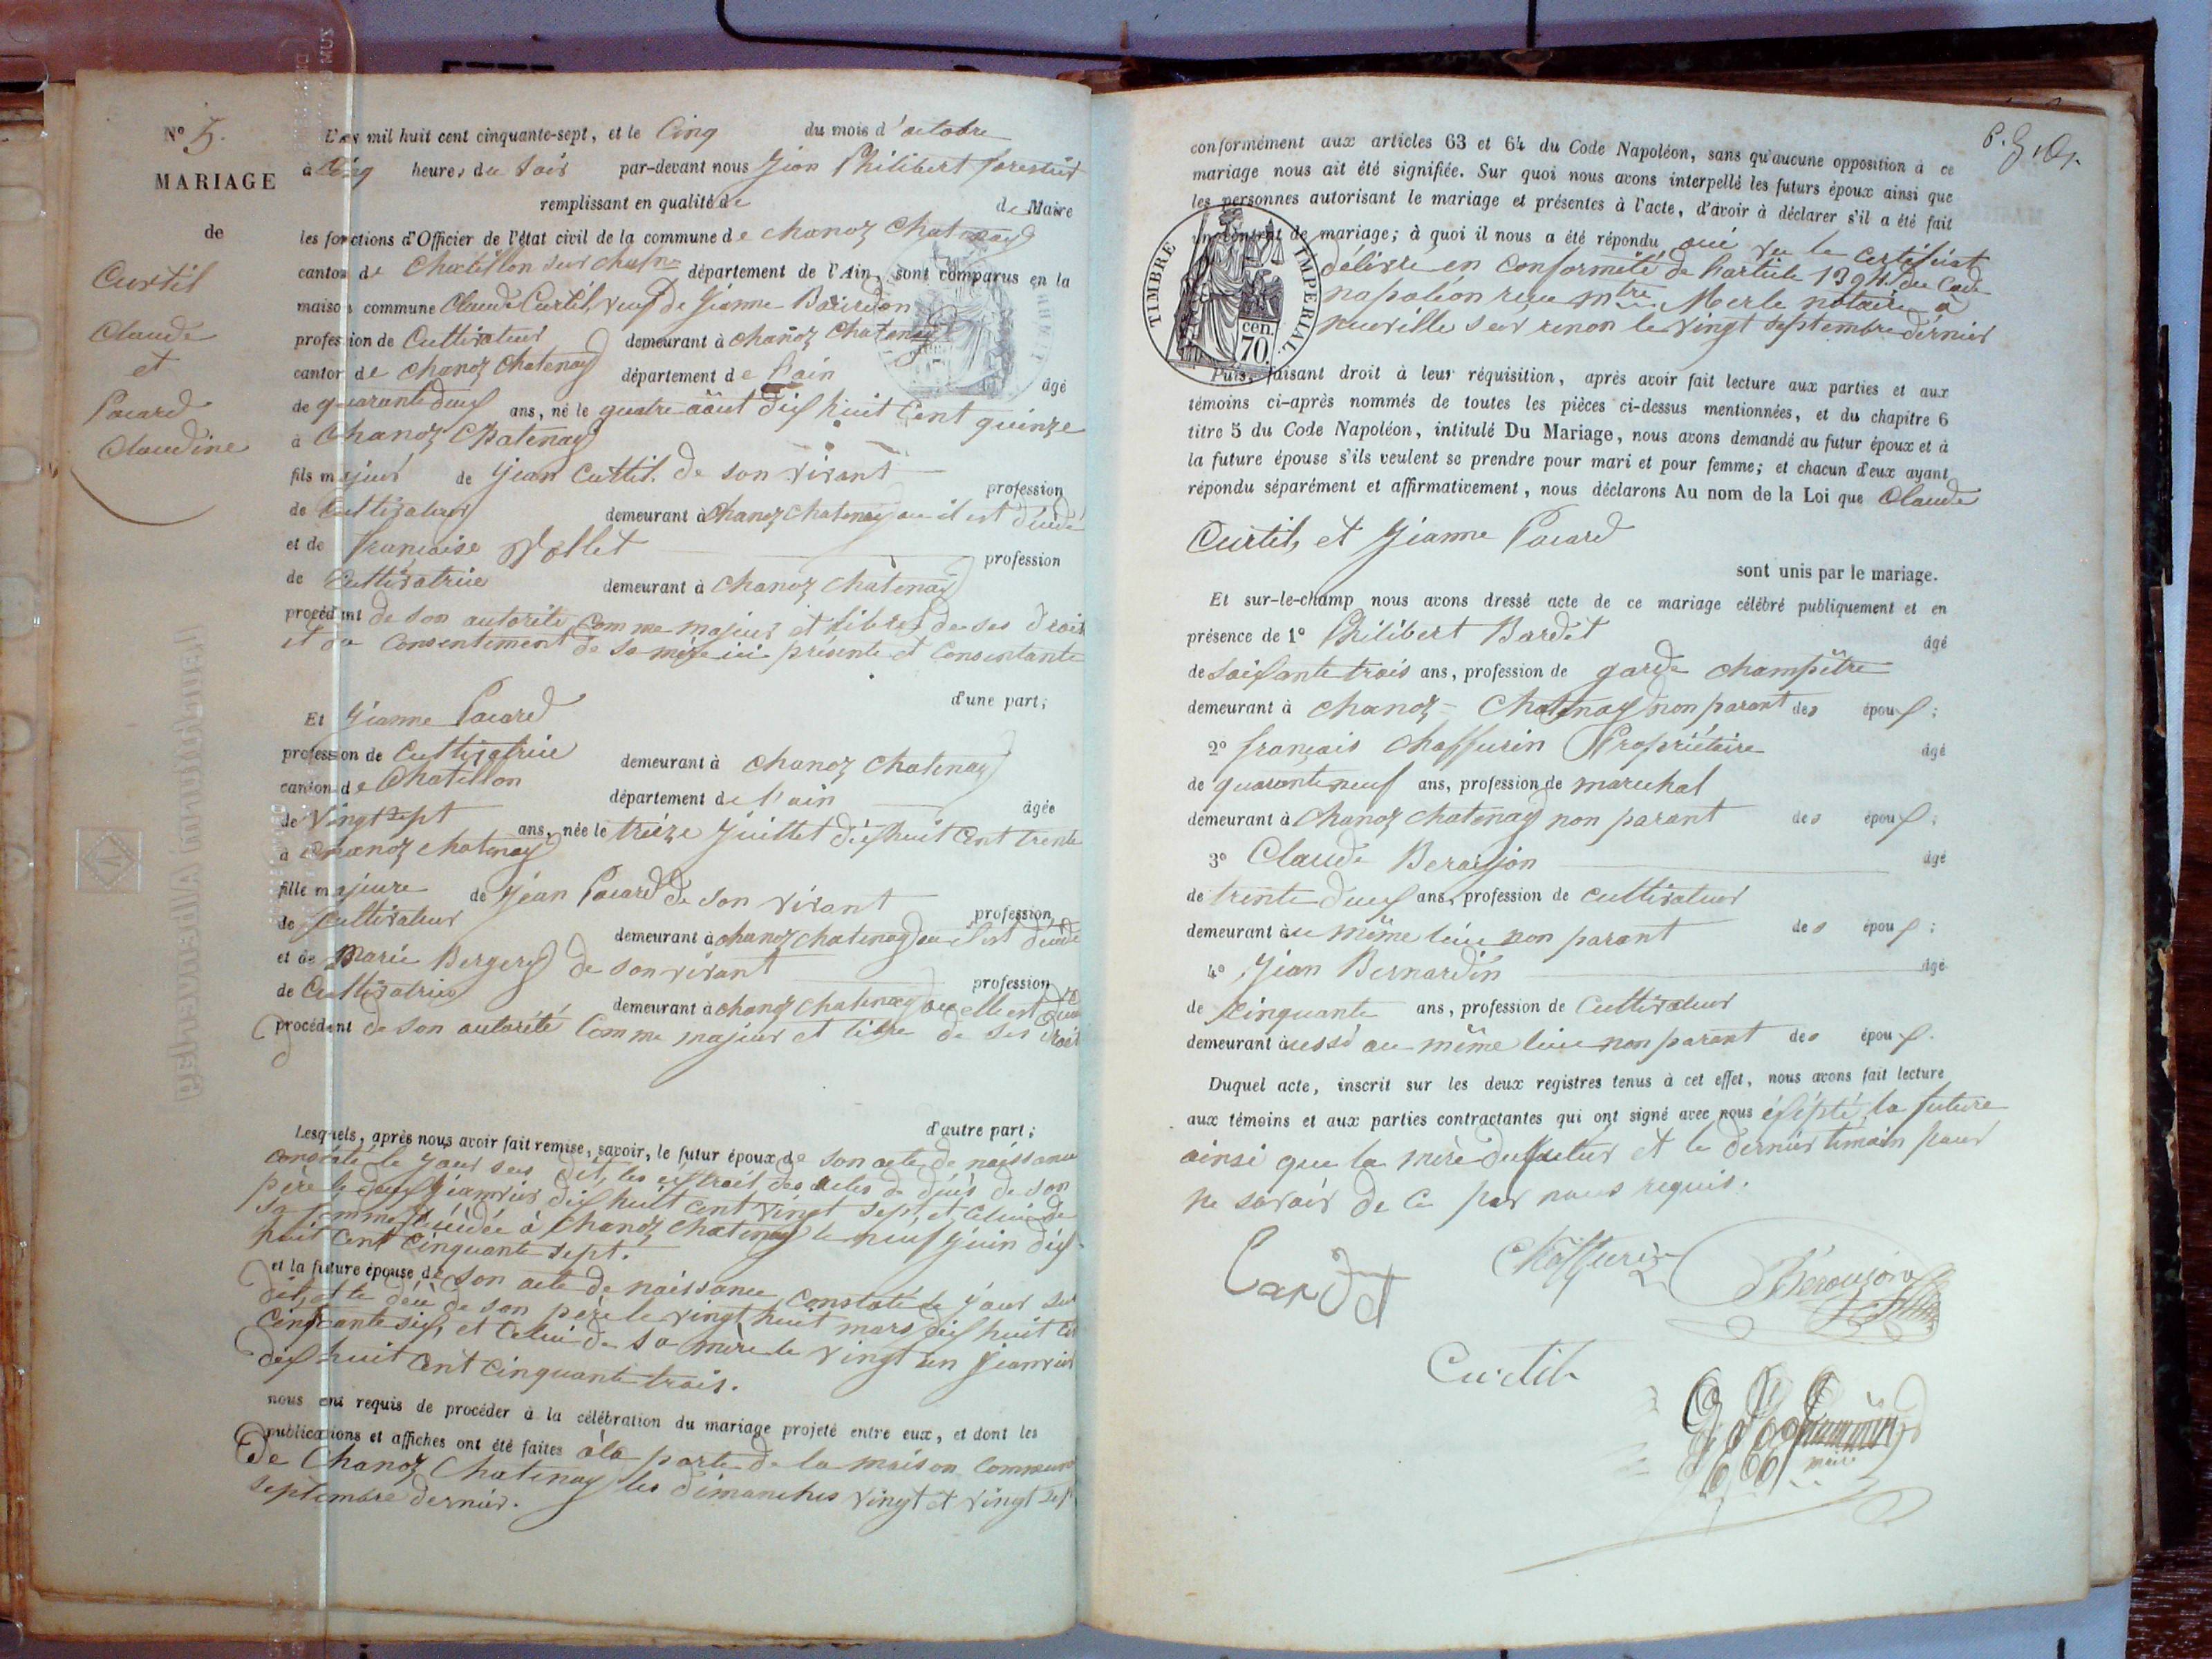 N° 5.
MARIAGE
de
Curtil
Claude
et
Pacard
Claudine
L'an mil huit cent cinquante-sept, et le Cinq du mois d'octobre
à Cinq heures du Soir par-devant nous Jean Philibert forestier
remplissant en qualité de de Maire
les fonctions d'Officier de l'état civil de la commune de chanoz Chatenay
canton de Chatillon sur chal.ne département de l'Ain, sont comparus en la
maison commune Claude Curtil, veuf de Jeanne Bourdon
profession de Cultivateur demeurant à chanoz Chatenay
canton de chanoz Chatenay département de l'ain âgé
de quarante deux ans, né le quatre août dix huit Cent quinze
à Chanoz Chatenay
fils majeur de Jean Curtil. de son vivant profession
de Cultivateur demeurant à Chanoz chatenay ou il est décédé
et de françoise Vollet profession
de Cultivatrice demeurant à chanoz chatenay
procédant de son autorité Comme majeur et libres de ses droit
et du Consentement de sa mère ici présente et Consentante
d'une part;
Et Jeanne Pacard
profession de Cultivatrice demeurant à chanoz chatenay
canton de Chatillon département de l'ain âgée
de Vingt sept ans, née le treize Juillet dix huit Cent trente
à Chanoz chatenay
fille majeure de Jean Pacard de son vivant profession
de Cultivateur demeurant à chanoz chatenay ou il est décédé
et de Marie Bergery de son vivant profession
de Cultivatrice demeurant à chanoz chatenay ou elle est
procédant de son autorité Comme majeur et libre de ses droit
d'autre part;
Lesquels, après nous avoir fait remise, savoir, le futur époux de son acte de naissance
constaté le jour sus dit, les extrait des actes de décès de son
père le deux Jeanvier dix huit cent vingt sept et Celui de
sa femme décédée à Chanoz Chatenay le neuf juin dix
huit Cent Cinquante sept.
et la future épouse de son acte de naissance constaté le jour sus
dit, et le décè de son père le vingt huit mars dix huit Cent
Cinquante six, et Celui de sa mère le vingt un Jeanvier
dix huit Cent Cinquante trois.
nous ont requis de procéder à la célébration du mariage projeté entre eux, et dont les
publications et affiches ont été faites à la porte de la maison Commune
de Chanoz Chatenay les dimanches vingt et vingt sept
septembre dernier.
conformément aux articles 63 et 64 du Code Napoléon, sans qu'aucune opposition à ce
mariage nous ait été signifiée. Sur quoi nous avons interpellé les futurs époux ainsi que
les personnes autorisant le mariage et présentes à l'acte, d'avoir à déclarer s'il a été fait
un contrat de mariage; à quoi il nous a été répondu oui vu le Certificat
délivré en Conformité de l'article 1394 du Code
napoléon reçu mtre Merle notaire à
neuville sur renon le vingt septembre dernier
TIMBRE IMPERIAL
70 cen.
Puis, faisant droit à leur réquisition, après avoir fait lecture aux parties et aux
témoins ci-après nommés de toutes les pièces ci-dessus mentionnées, et du chapitre 6
titre 5 du Code Napoléon, intitulé Du Mariage, nous avons demandé au futur époux et à
la future épouse s'ils veulent se prendre pour mari et pour femme; et chacun d'eux ayant
répondu séparément et affirmativement, nous déclarons Au nom de la Loi que Claude
Curtil, et Jeanne Pacard
sont unis par le mariage.
Et sur-le-champ nous avons dressé acte de ce mariage célébré publiquement et en
présence de 1° Philibert Bardet âgé
de soixante trois ans, profession de garde champêtre
demeurant à chanoz - Chatenay non parant des époux;
2° françois Chaffurin Propriétaire âgé
de quarante neuf ans, profession de marechal
demeurant à Chanoz chatenay non parant des époux;
3° Claude Beraujon âgé
de trente deux ans, profession de cultivateur
demeurant au même lieu non parant des époux;
4° Jean Bernardin âgé
de Cinquante ans, profession de Cultivateur
demeurant aussi au même lieu non parant des époux.
Duquel acte, inscrit sur les deux registres tenus à cet effet, nous avons fait lecture
aux témoins et aux parties contractantes qui ont signé avec nous éxépté la future
ainsi que la mère du futur et le dernier témoin pour
ne savoir de Ce par nous requis.
Bardet Chaffurin Beraujon
Curtil
maire